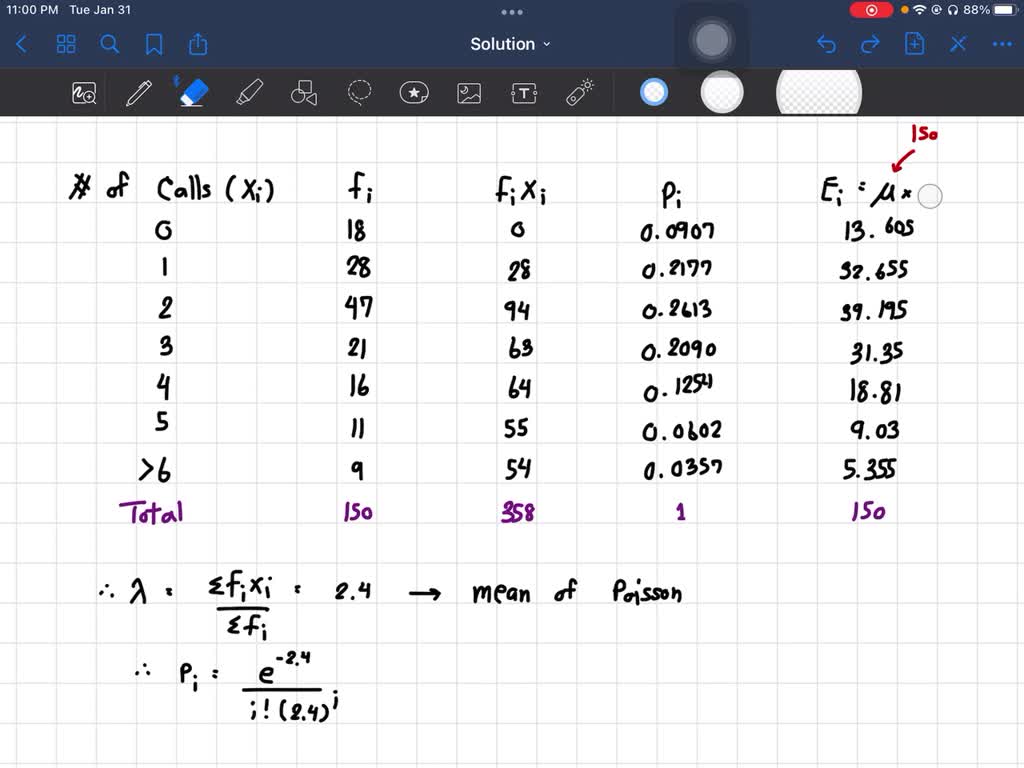 11:00 PM Tue Jan 31 88%
Solution
T
150
# of Calls (Xi) fi fiXi Pi Ei = μ ×
0 18 0 0.0907 13.605
1 28 28 0.2177 32.655
2 47 94 0.2613 39.195
3 21 63 0.2090 31.35
4 16 64 0.1254 18.81
5 11 55 0.0602 9.03
>6 9 54 0.0357 5.355
Total 150 358 1 150
∴ λ = Σfixi / Σfi = 2.4 → mean of Poisson
∴ Pi = e^-2.4 / i!(2.4)^i